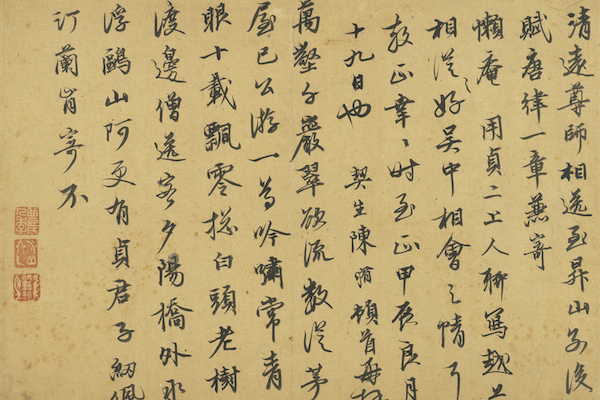 清遠尊師相送至昇山
賦唐律一章兼寄
懶庵用貞二上人聊寫越
相從之好吳中相會之情
教正幸〻時至正甲辰良月
十九日也 契生陳 頓首再拜
萬壑千巖翠欲流數從茅
屋已公游一尊吟嘯常青
眼十載飄零總白頭老樹
渡邊僧送客夕陽橋外水
浮鷗山阿更有貞君子紉佩
汀蘭肯寄不